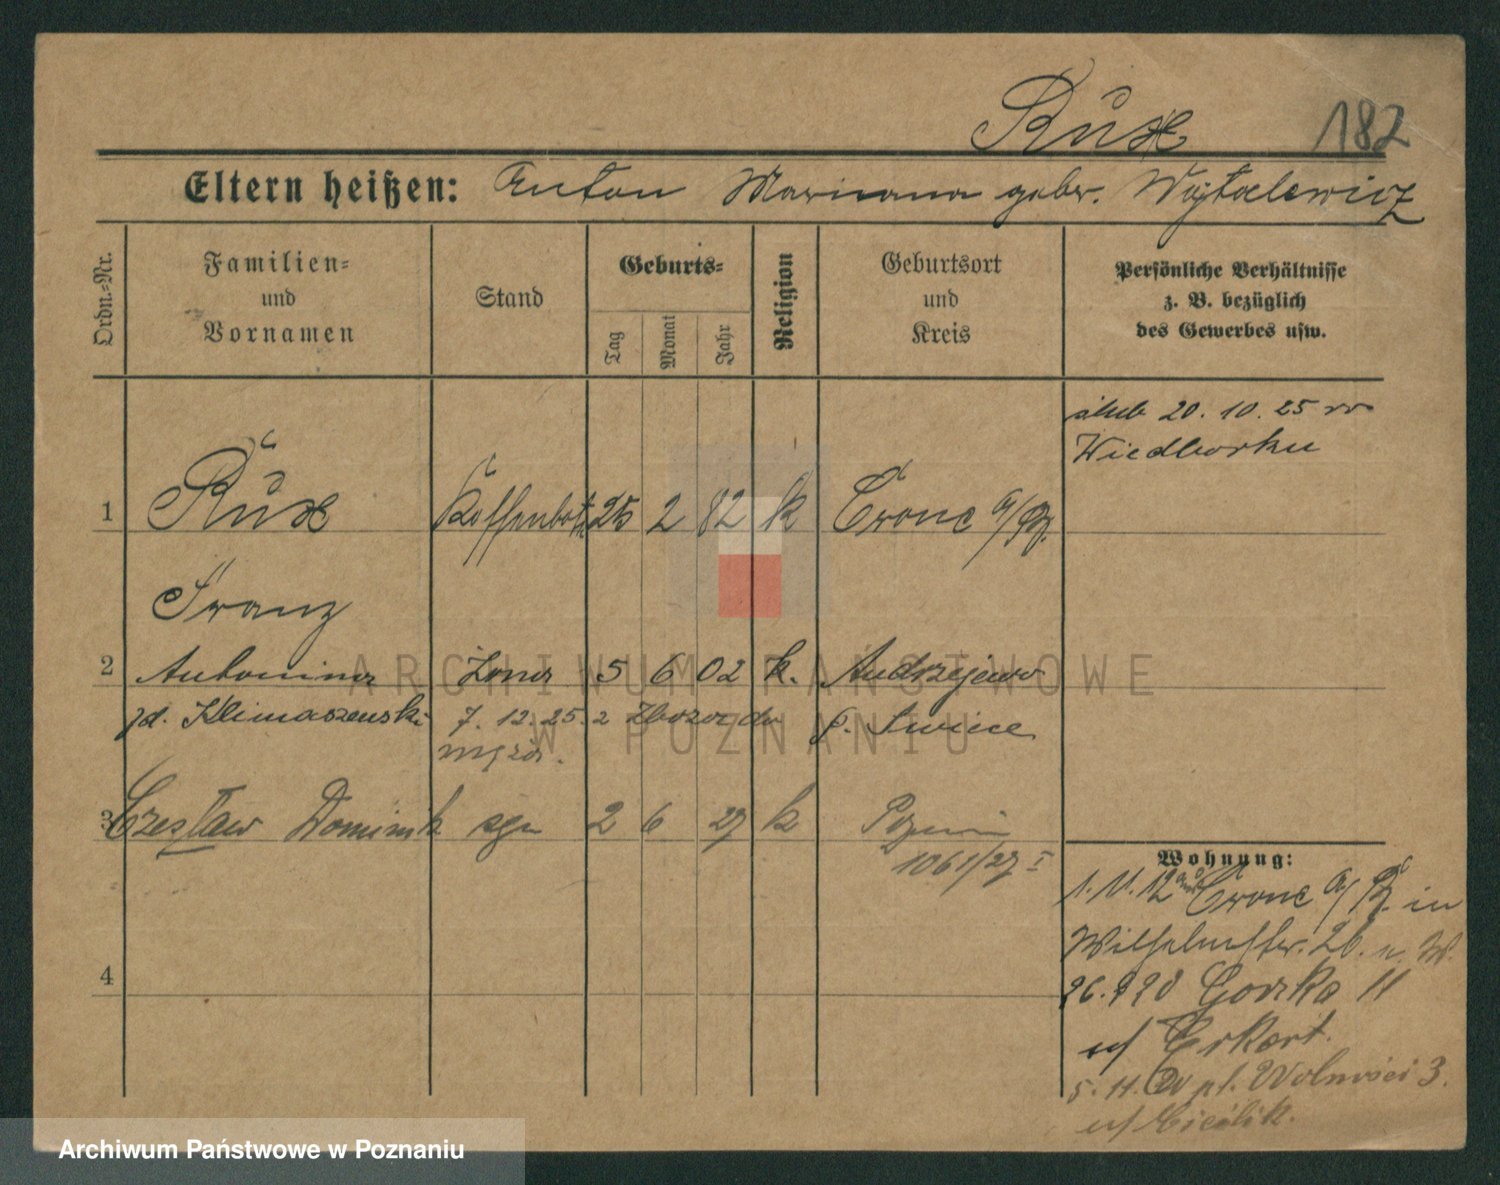 Rux 182
Eltern heißen: Anton Marianna gebr. Wojtalewicz
Ordn.-Nr.
Familien-
und
Vornamen
Stand
Geburts-
Tag
Monat
Jahr
Religion
Geburtsort
und
Kreis
Persönliche Verhältnisse
z. B. bezüglich
des Gewerbes usw.
ślub 20. 10. 25 w
Wiedborku
1 Rux 25 2 82 k Crone a/Br.
Franz
2 Antonina Żona 5 6 02 k. Andrzejewo
zd. Klimaszewski 7. 12. 25. z Zboża do p. Swiece
męża.
3 Czesław Dominik syn 2 6 27 k Poznań
1061/27 I
Wohnung:
1. 11. 12 Crone a/Br. in
Wilhelmstr. 26. n. W.
26. 9 20 Gorska 11
u/ Erkert.
5. 11. 20 pl. Wolności 3.
u/ Cieślik.
4
ARCHIWUM PAŃSTWOWE
W POZNANIU
Archiwum Państwowe w Poznaniu